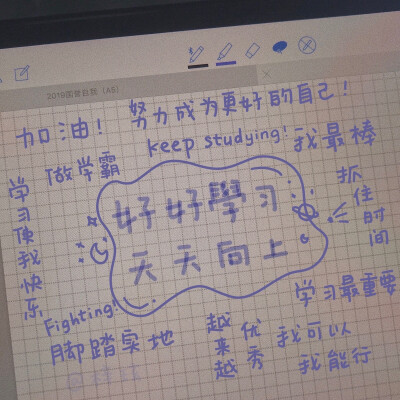 加油!
努力成为更好的自己!
keep studying!
我最棒
做学霸
学习使我快乐
抓住时间
好好學习
天天向上
Fighting!
学习最重要
脚踏实地
越来越优秀
我可以
我能行